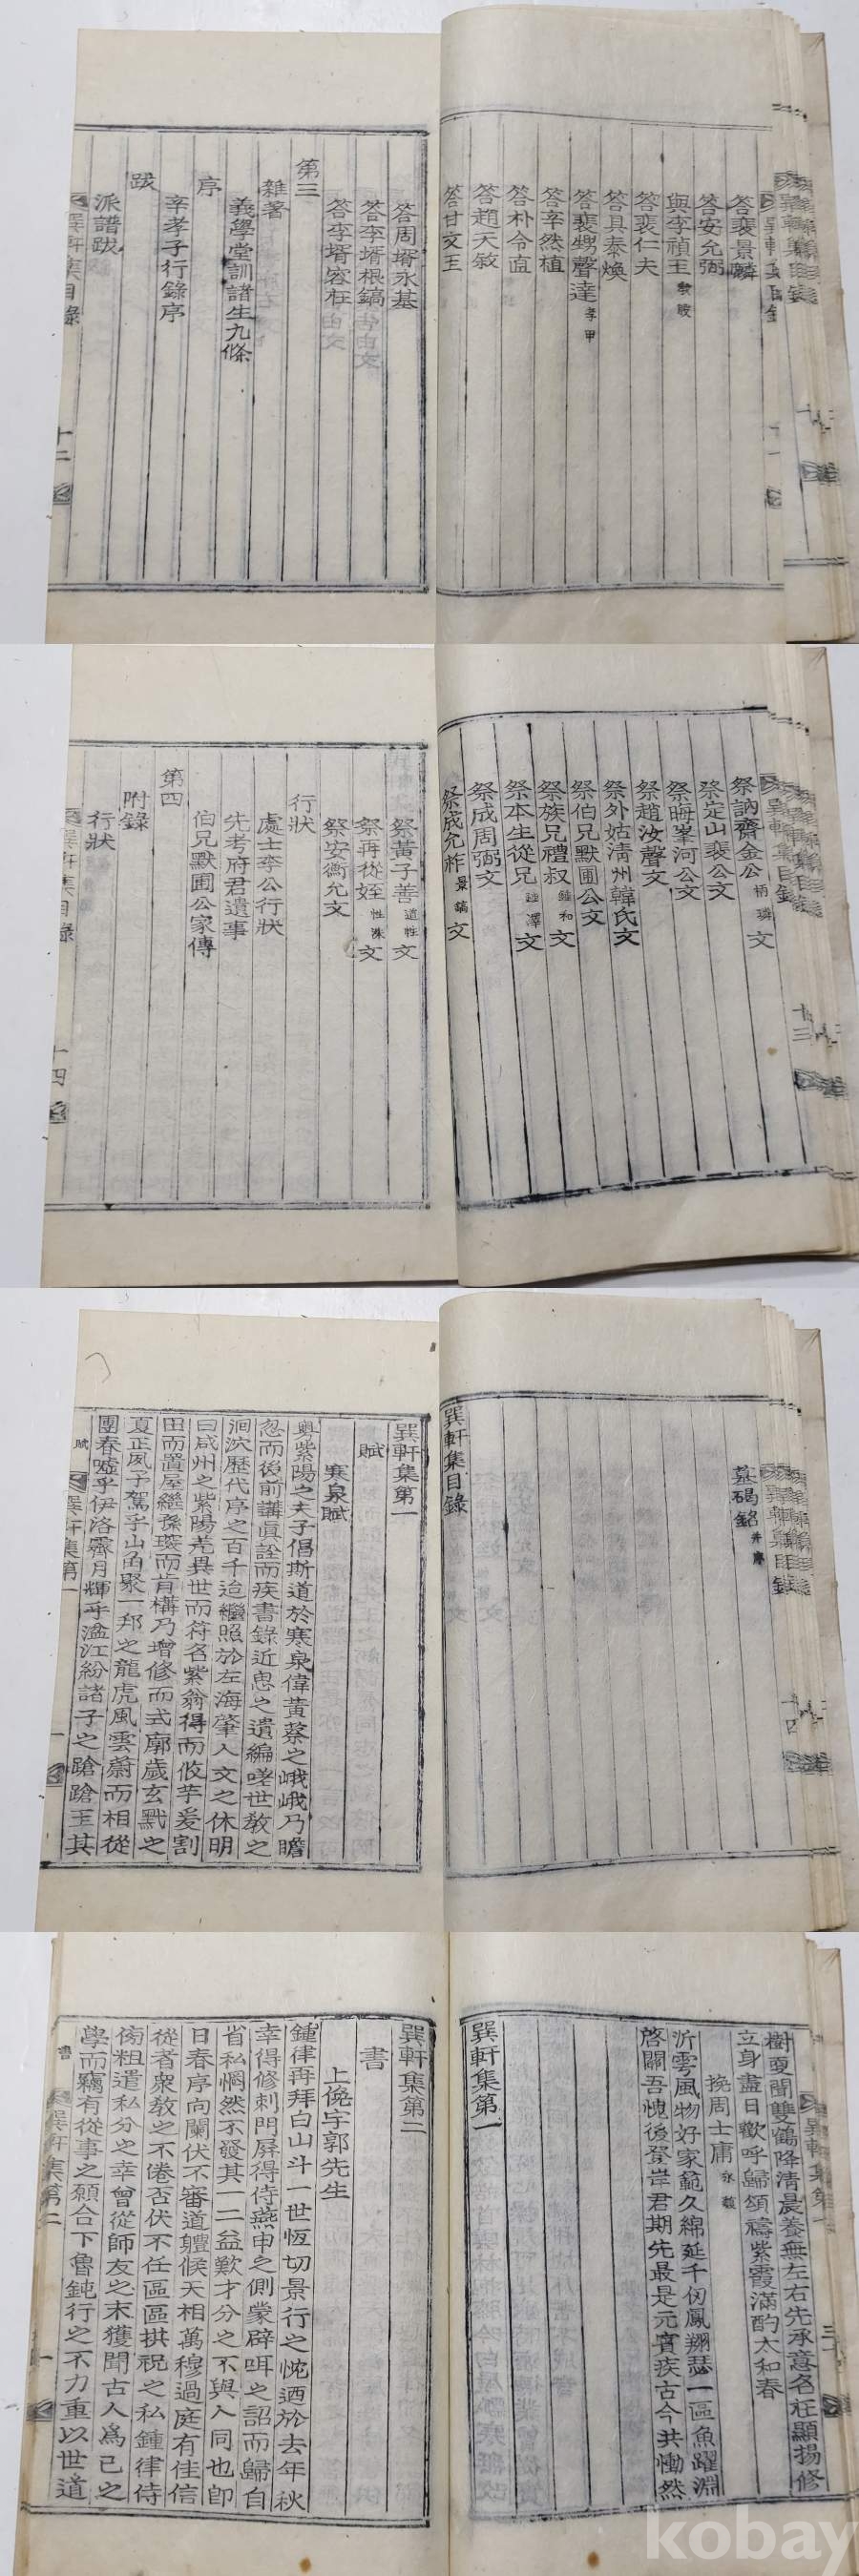 答裵景麟
答安允弼
與李禎玉
答裵仁夫
答具泰煥
答裵甥聲達 孝甲
答辛然植
答朴令直
答趙天敘
答甘文玉
答周壻永基
答李壻根鎬
答李壻容在
第三
雜著
義學堂訓諸生九條
序
辛孝子行錄序
跋
派譜跋
巽軒集目錄
十二
祭訥齋金公 柄璘 文
祭定山裵公文
祭晦峯河公文
祭趙汝聲文
祭外姑淸州韓氏文
祭伯兄默圃公文
祭族兄禮叔 鍾和 文
祭本生從兄 鍾澤 文
祭成周弼文
祭成允柞 景鎬 文
祭黃子善 道性 文
祭再從姪 性洙 文
祭安衡允文
行狀
處士李公行狀
先考府君遺事
伯兄默圃公家傳
第四
附錄
行狀
巽軒集目錄
十四
墓碣銘 幷序
巽軒集目錄
巽軒集第一
賦
寒泉賦
奧紫陽之夫子倡斯道於寒泉偉黃蔡之峨峨乃瞻
忽而後前講眞詮而疾書錄近思之遺編嗟世敎之
洄泬歷代序之百千迨繼照於左海肇人文之休明
曰咸州之紫陽羌異世而符名紫翁得而攸芋爰割
田而置屋繼孫𤨏而肯構乃增修而式廓歲玄黓之
夏正夙予駕乎山角聚一邦之龍虎風雲蔚而相從
團春噓乎伊洛霽月輝乎湓江紛諸子之蹌蹌王其
賦
巽軒集第一
一
樹更聞雙鶴降淸晨養無左右先承意名在顯揚修
立身盡日歡呼歸頌禱紫霞滿酌太和春
挽周士庸 永轂
沂雩風物好家範久綿延千仞鳳翔瑟一區魚躍淵
啓關吾愧後登岸君期先最是元賓疾古今共慟然
巽軒集第一
巽軒集第二
書
上俛宇郭先生
鍾律再拜白山斗一世恆切景行之忱迺於去年秋
幸得修刺門屛得侍燕申之側蒙辟咡之詔而歸自
省私惘然不發其一二益歎才分之不與人同也卽
日春序向闌伏不審道體候天相萬穆過庭有佳信
從者衆敎之不倦否伏不任區區拱祝之私鍾律侍
傍粗遣私分之幸曾從師友之末獲聞古人爲己之
學而竊有從事之願合下魯鈍行之不力重以世道
書
巽軒集第二
一
kobay